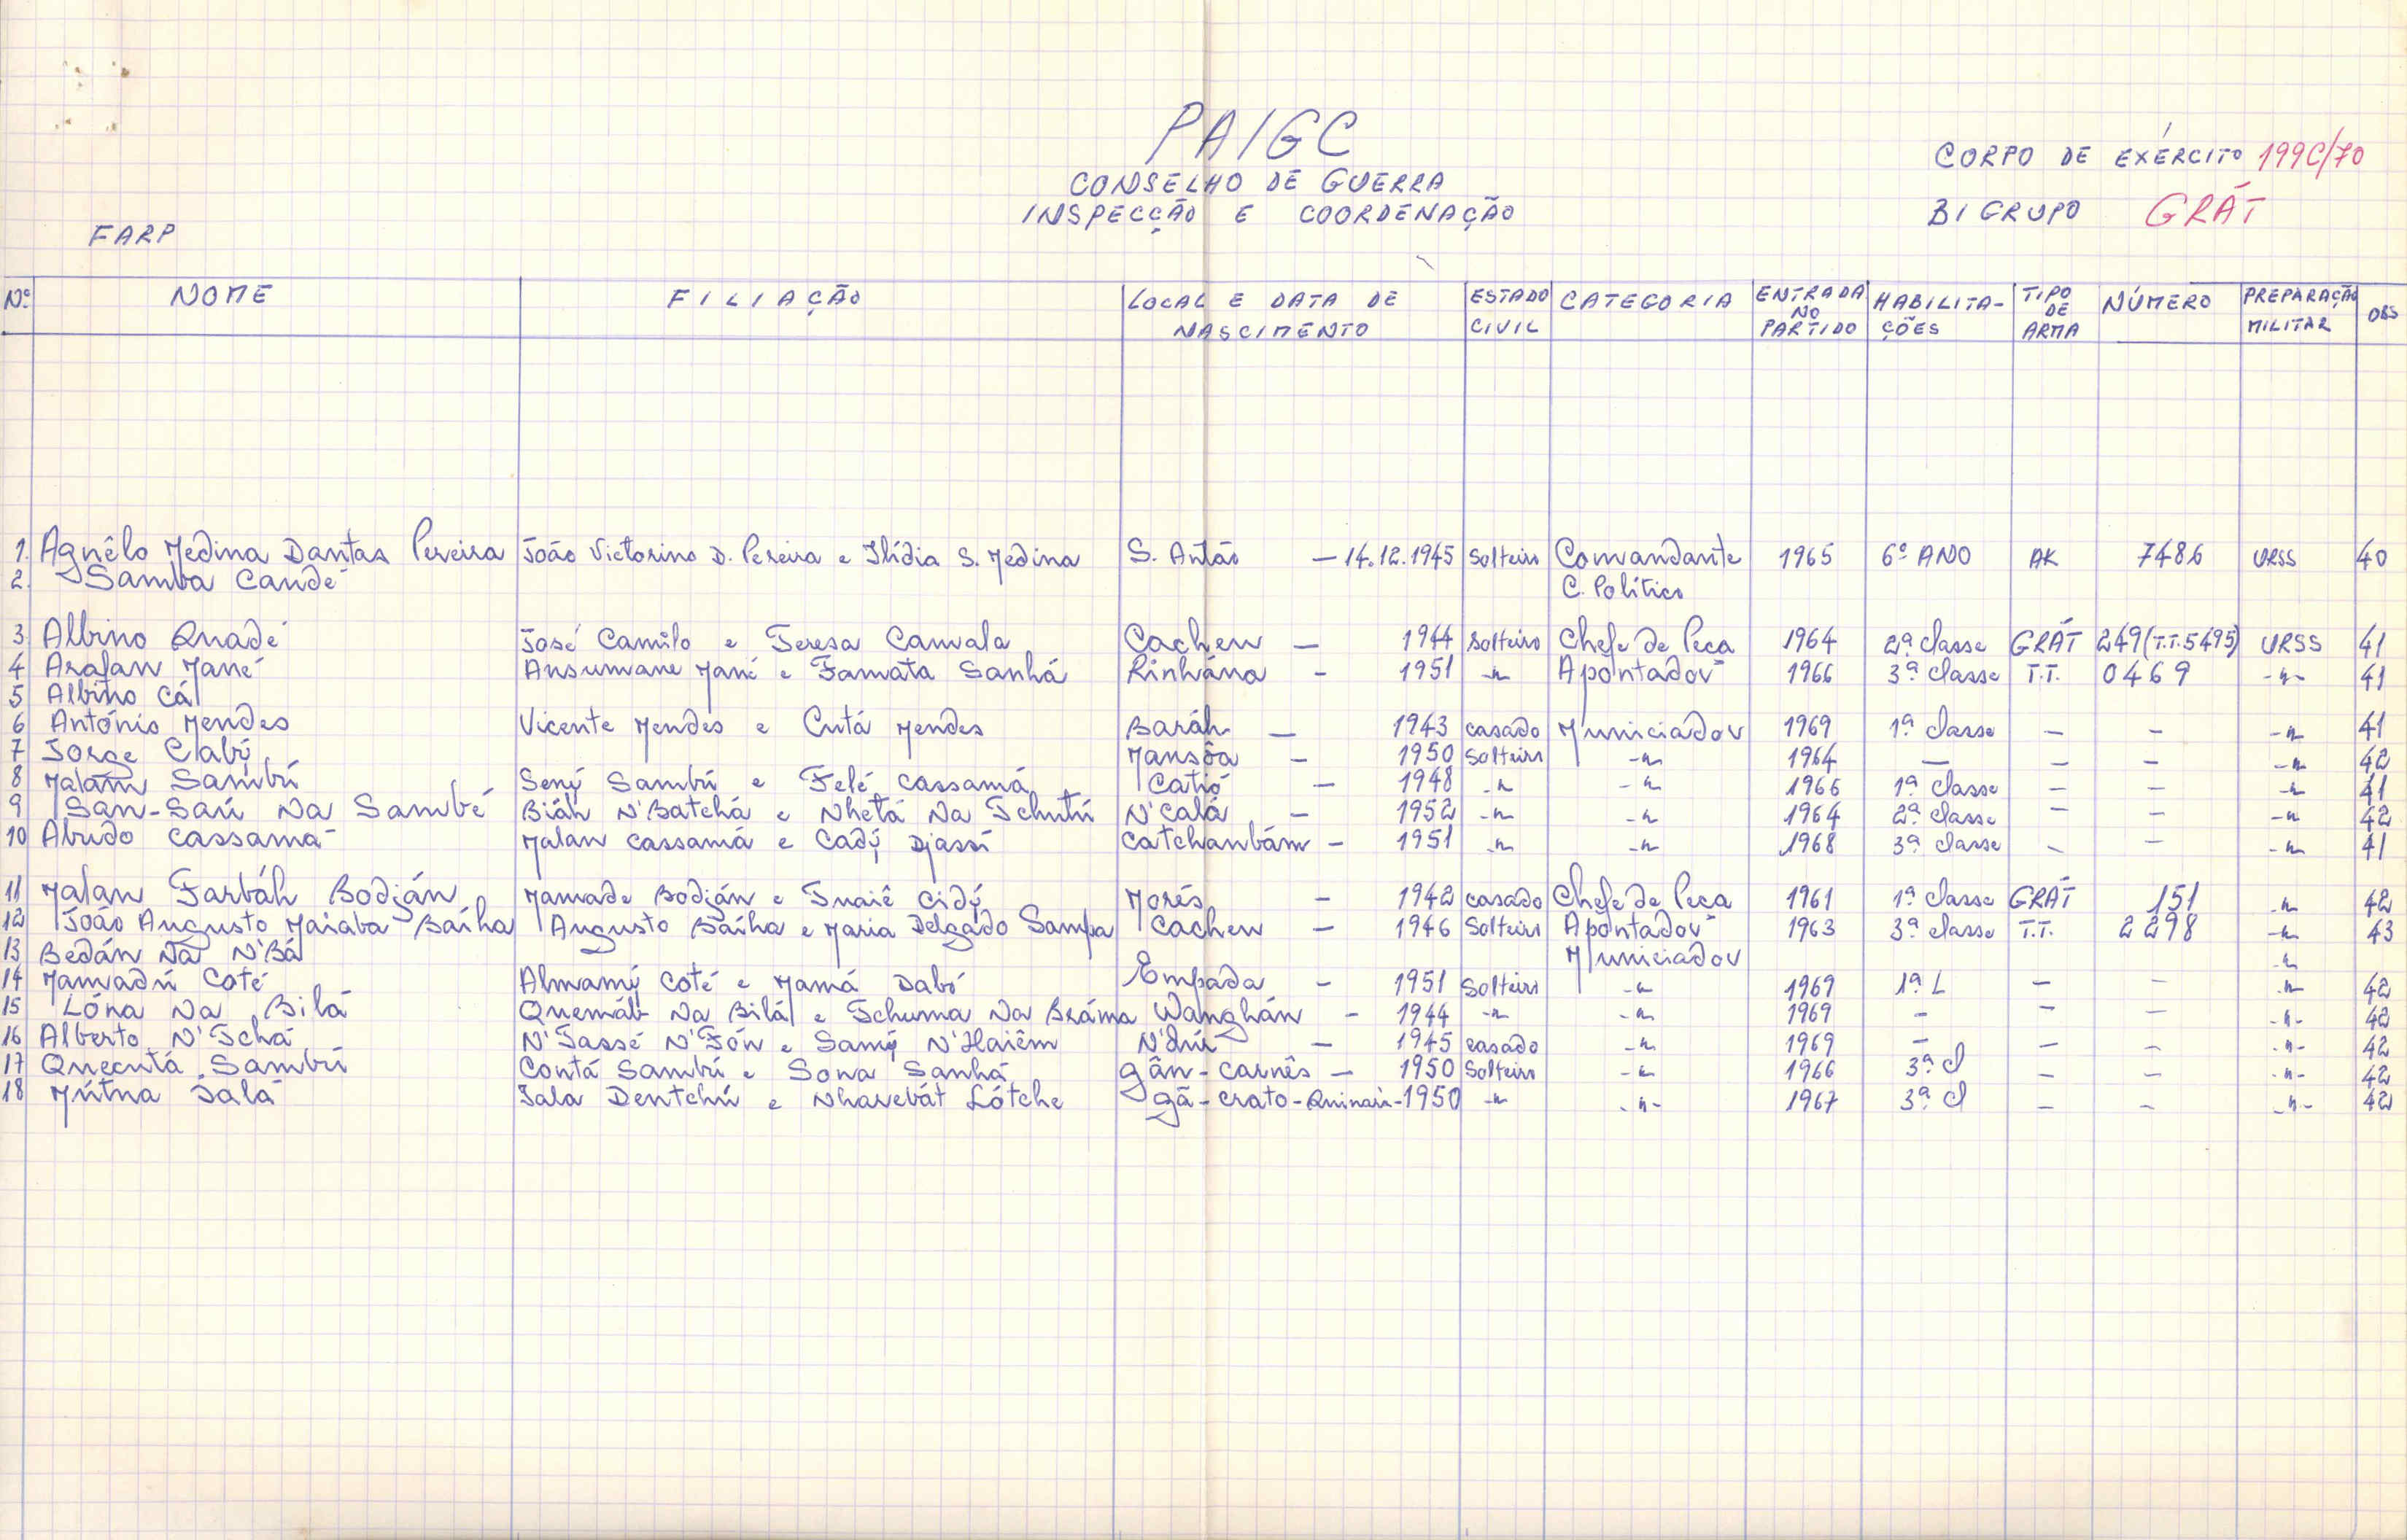 PAIGC
CONSELHO DE GUERRA
INSPECÇÃO E COORDENAÇÃO
CORPO DE EXÉRCITO 199C/70
BI GRUPO GRÁT
FARP
Nº NOME FILIAÇÃO LOCAL E DATA DE NASCIMENTO ESTADO CIVIL CATEGORIA ENTRADA NO PARTIDO HABILITA-ÇÕES TIPO DE ARMA NÚMERO PREPARAÇÃO MILITAR OBS
1. Agnêlo Medina Dantas Pereira João Victorino D. Pereira e Ilídia S. Medina S. Antão — 14.12.1945 Solteiro Comandante 1965 6º ANO AK 7486 URSS 40
2. Samba Candé C. Político
3. Albino Quadé José Camilo e Teresa Camala Cacheu — 1944 Solteiro Chefe de Peça 1964 2ª classe GRÁT 249 (T.T.5495) URSS 41
4 Arafan Mané Ansumane Mané e Famata Sanhá Rinhána - 1951 -"- Apontador 1966 3ª classe T.T. 0469 -"- 41
5 Albino Cá
6 António Mendes Vicente Mendes e Cutá Mendes Baráh — 1943 casado Municiador 1969 1ª classe — - -"- 41
7 Jorge Cabý Mansôa - 1950 Solteiro -"- 1964 — — - -"- 42
8 Malam Sambú Sený Sambú e Felé Cassamá Catió - 1948 -"- -"- 1966 1ª classe — - -"- 41
9 San-Saú Na Sambé Biáh N'Batchá e Nhetá Na Tchutú N'Calá - 1952 -"- -"- 1964 2ª classe - - -"- 42
10 Abudo Cassamá Malan Cassamá e Cadý Djassí Catchanbám - 1951 -"- -"- 1968 3ª classe - - -"- 41
11 Malan Farbáh Bodján Mamade Bodján e Fnaiê Cidý Morés - 1942 casado Chefe de Peça 1961 1ª classe GRÁT 151 -"- 42
12 João Augusto Maiaba Baíha Augusto Baíha e Maria Delgado Sampa Cacheu - 1946 Solteiro Apontador 1963 3ª classe T.T. 2298 -"- 43
13 Bedán Na N'Bá Municiador -"-
14 Mamadú Coté Almamý Coté e Mamá Dabó Empada - 1951 Solteiro -"- 1969 1ª L — - -"- 42
15 Lóna Na Bilá Quemáb Na Bilá e Tchuma Na Bráma Wanghán - 1944 -"- -"- 1969 - - - -"- 42
16 Alberto N'Tchá N'Tassé N'Fón e Samý N'Haiêm N'dúi - 1945 casado -"- 1969 - - - -"- 42
17 Quecutá Sambú Contá Sambú e Sona Sanhá gân-carnês - 1950 Solteiro -"- 1966 3ª cl — - -"- 42
18 Mútna Jalá Jala Dentchú e Nharebát Lótche gã-crato-Quinari-1950 -"- -"- 1967 3ª cl — - -"- 42